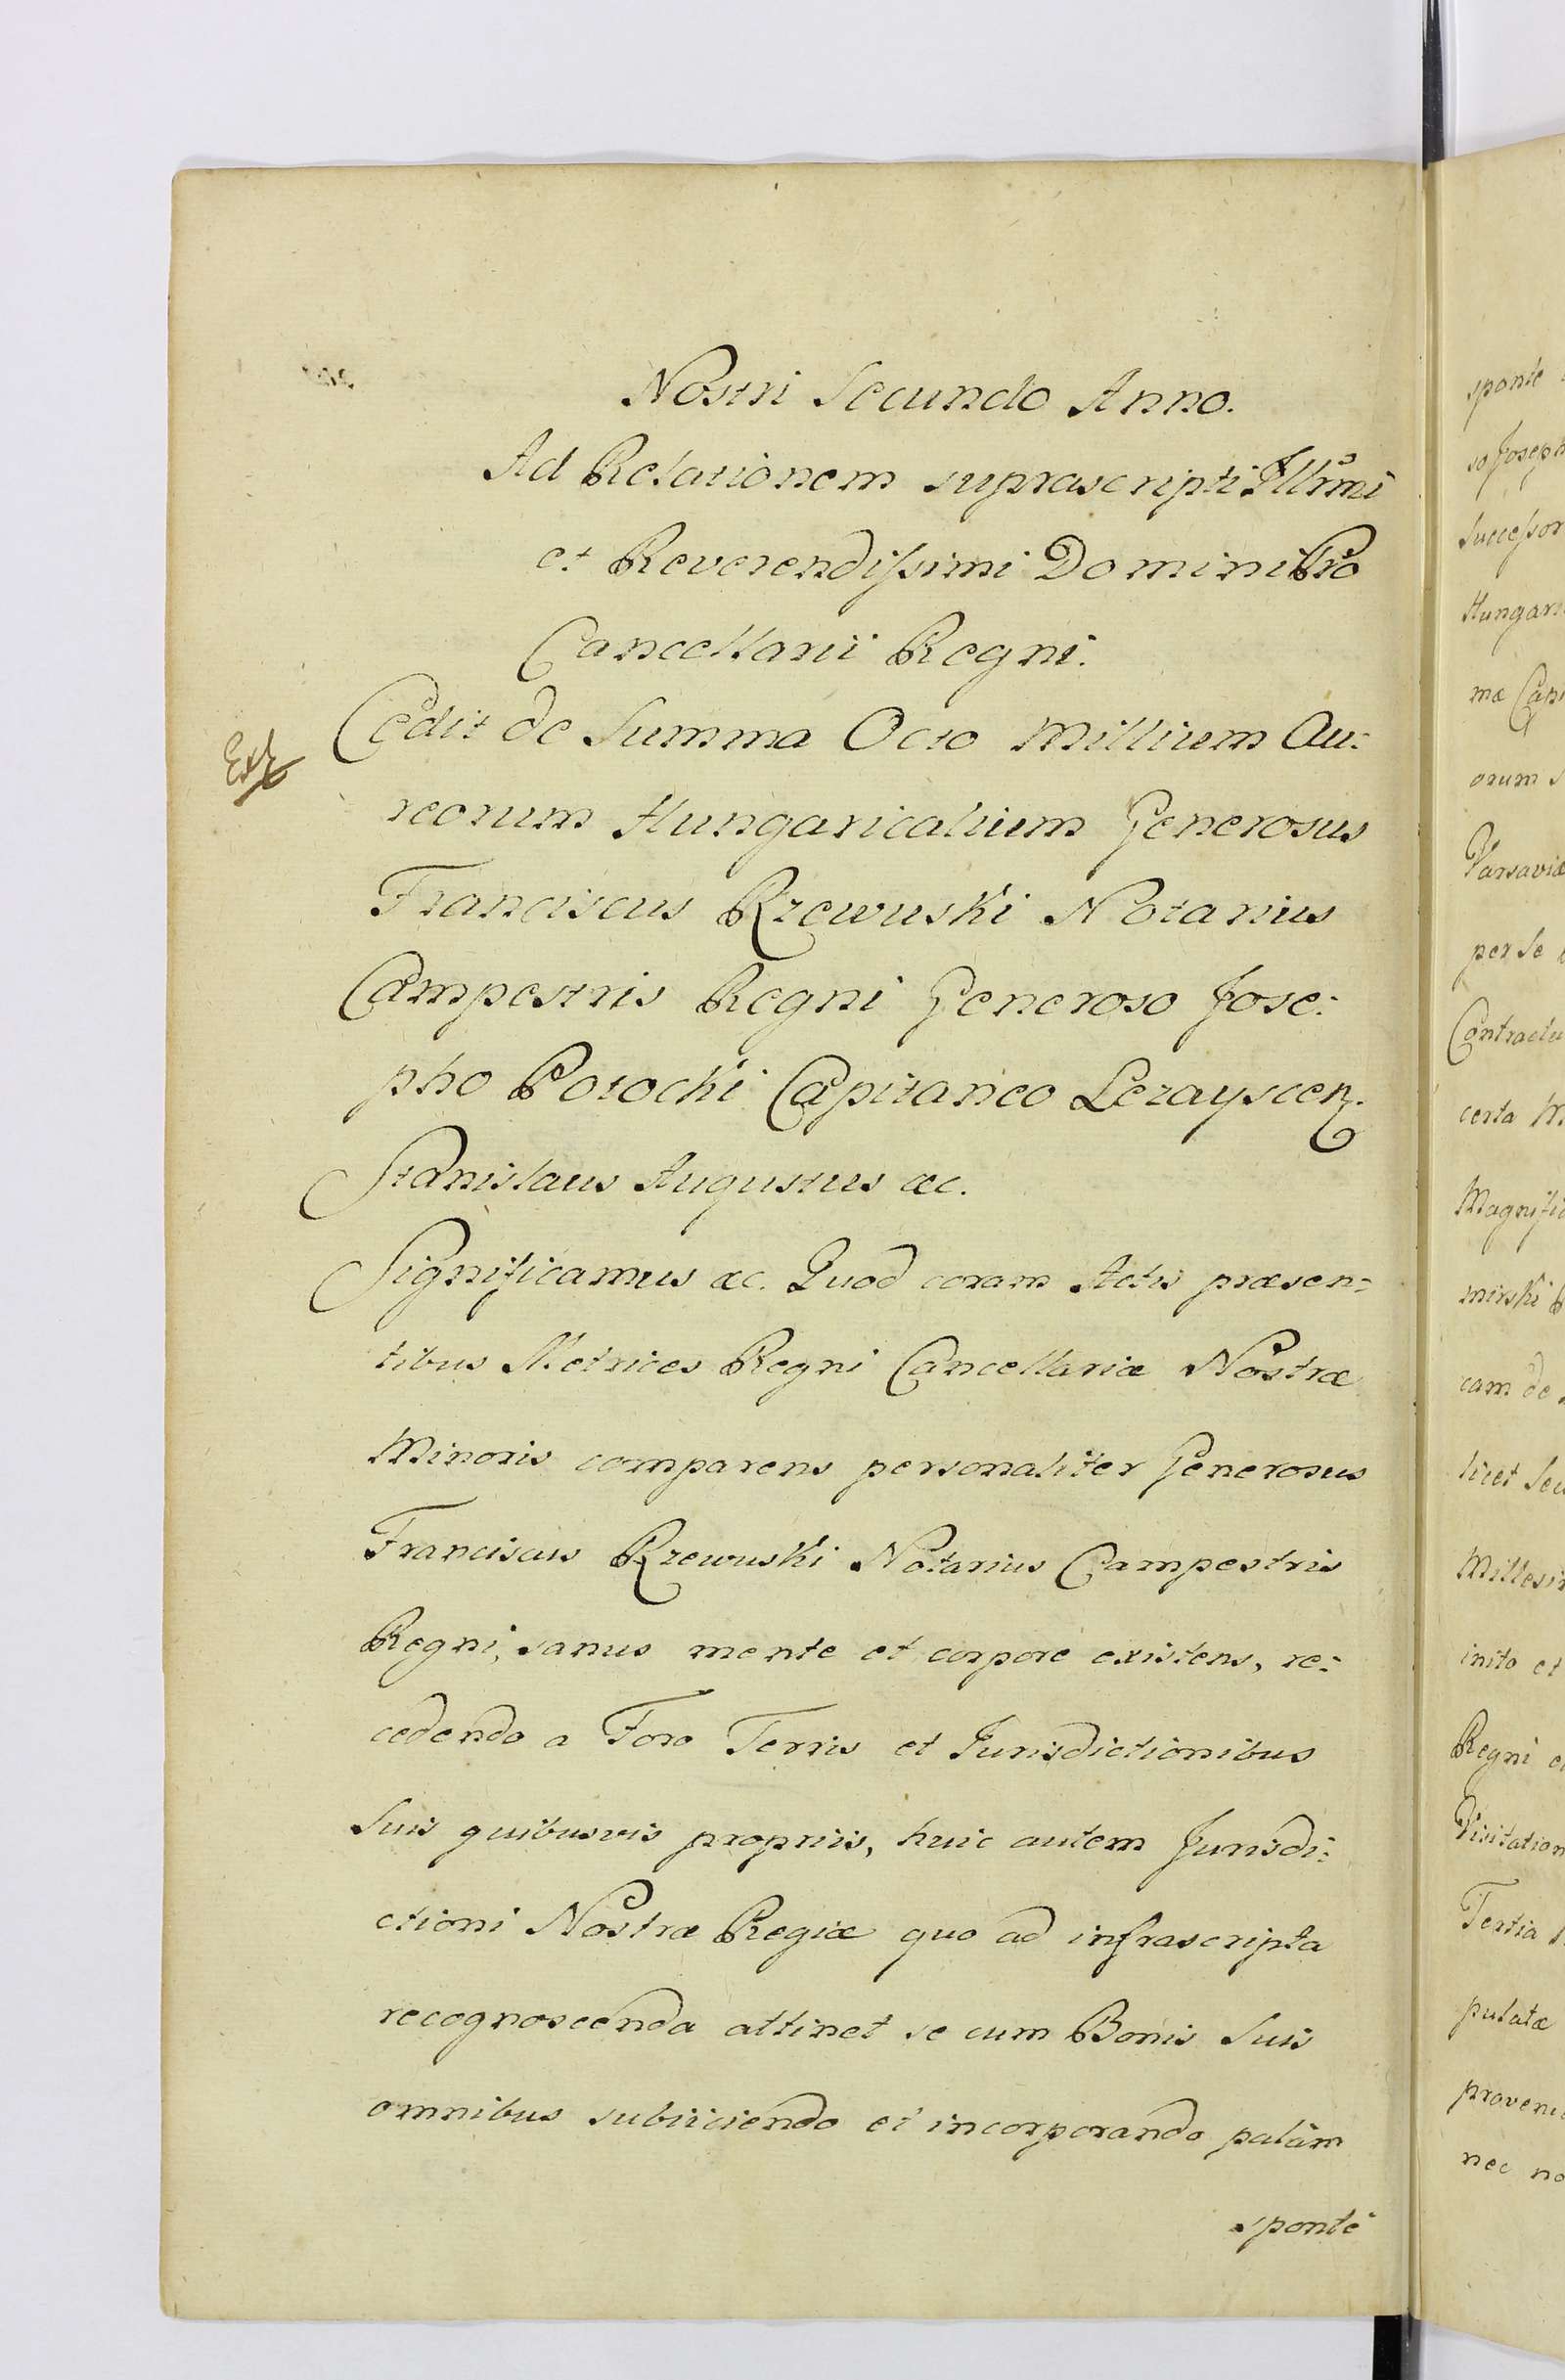 Nostri Secundo Anno.
Ad Relationem suprascripti Illrmi
et Reverendissimi Domini Pro
Cancellarii Regni.
Ext
Cedit de Summa Octo Millium Au:
reorum Hungaricalium Generosus
Franciscus Rzewuski Notarius
Campestris Regni Generoso Jose:
pho Potocki Capitaneo Lezayscen.
Stanislaus Augustus &c.
Significamus &c. Quod coram Actis præsen:
tibus Metrices Regni Cancellariæ Nostræ
Minoris comparens personaliter Generosus
Franciscus Rzewuski Notarius Campestris
Regni, sanus mente et corpore existens, re:
cedendo a Foro Terris et Jurisdictionibus
Suis quibusvis propriis, huic autem Jurisdi:
ctioni Nostræ Regiæ quo ad infrascripta
recognoscenda attinet se cum Bonis Suis
omnibus subiiciendo et incorporando palàm
sponte
sponte
so Joseph
Successor
Hungari
mæ Capi
orum s
Varsaviæ
per Se
Contractu
certa M
Magnifi
mirski
cam de
licet Secu
Millesi
inito et
Regni
Visitation
Tertia
putatæ
proveni
nec no